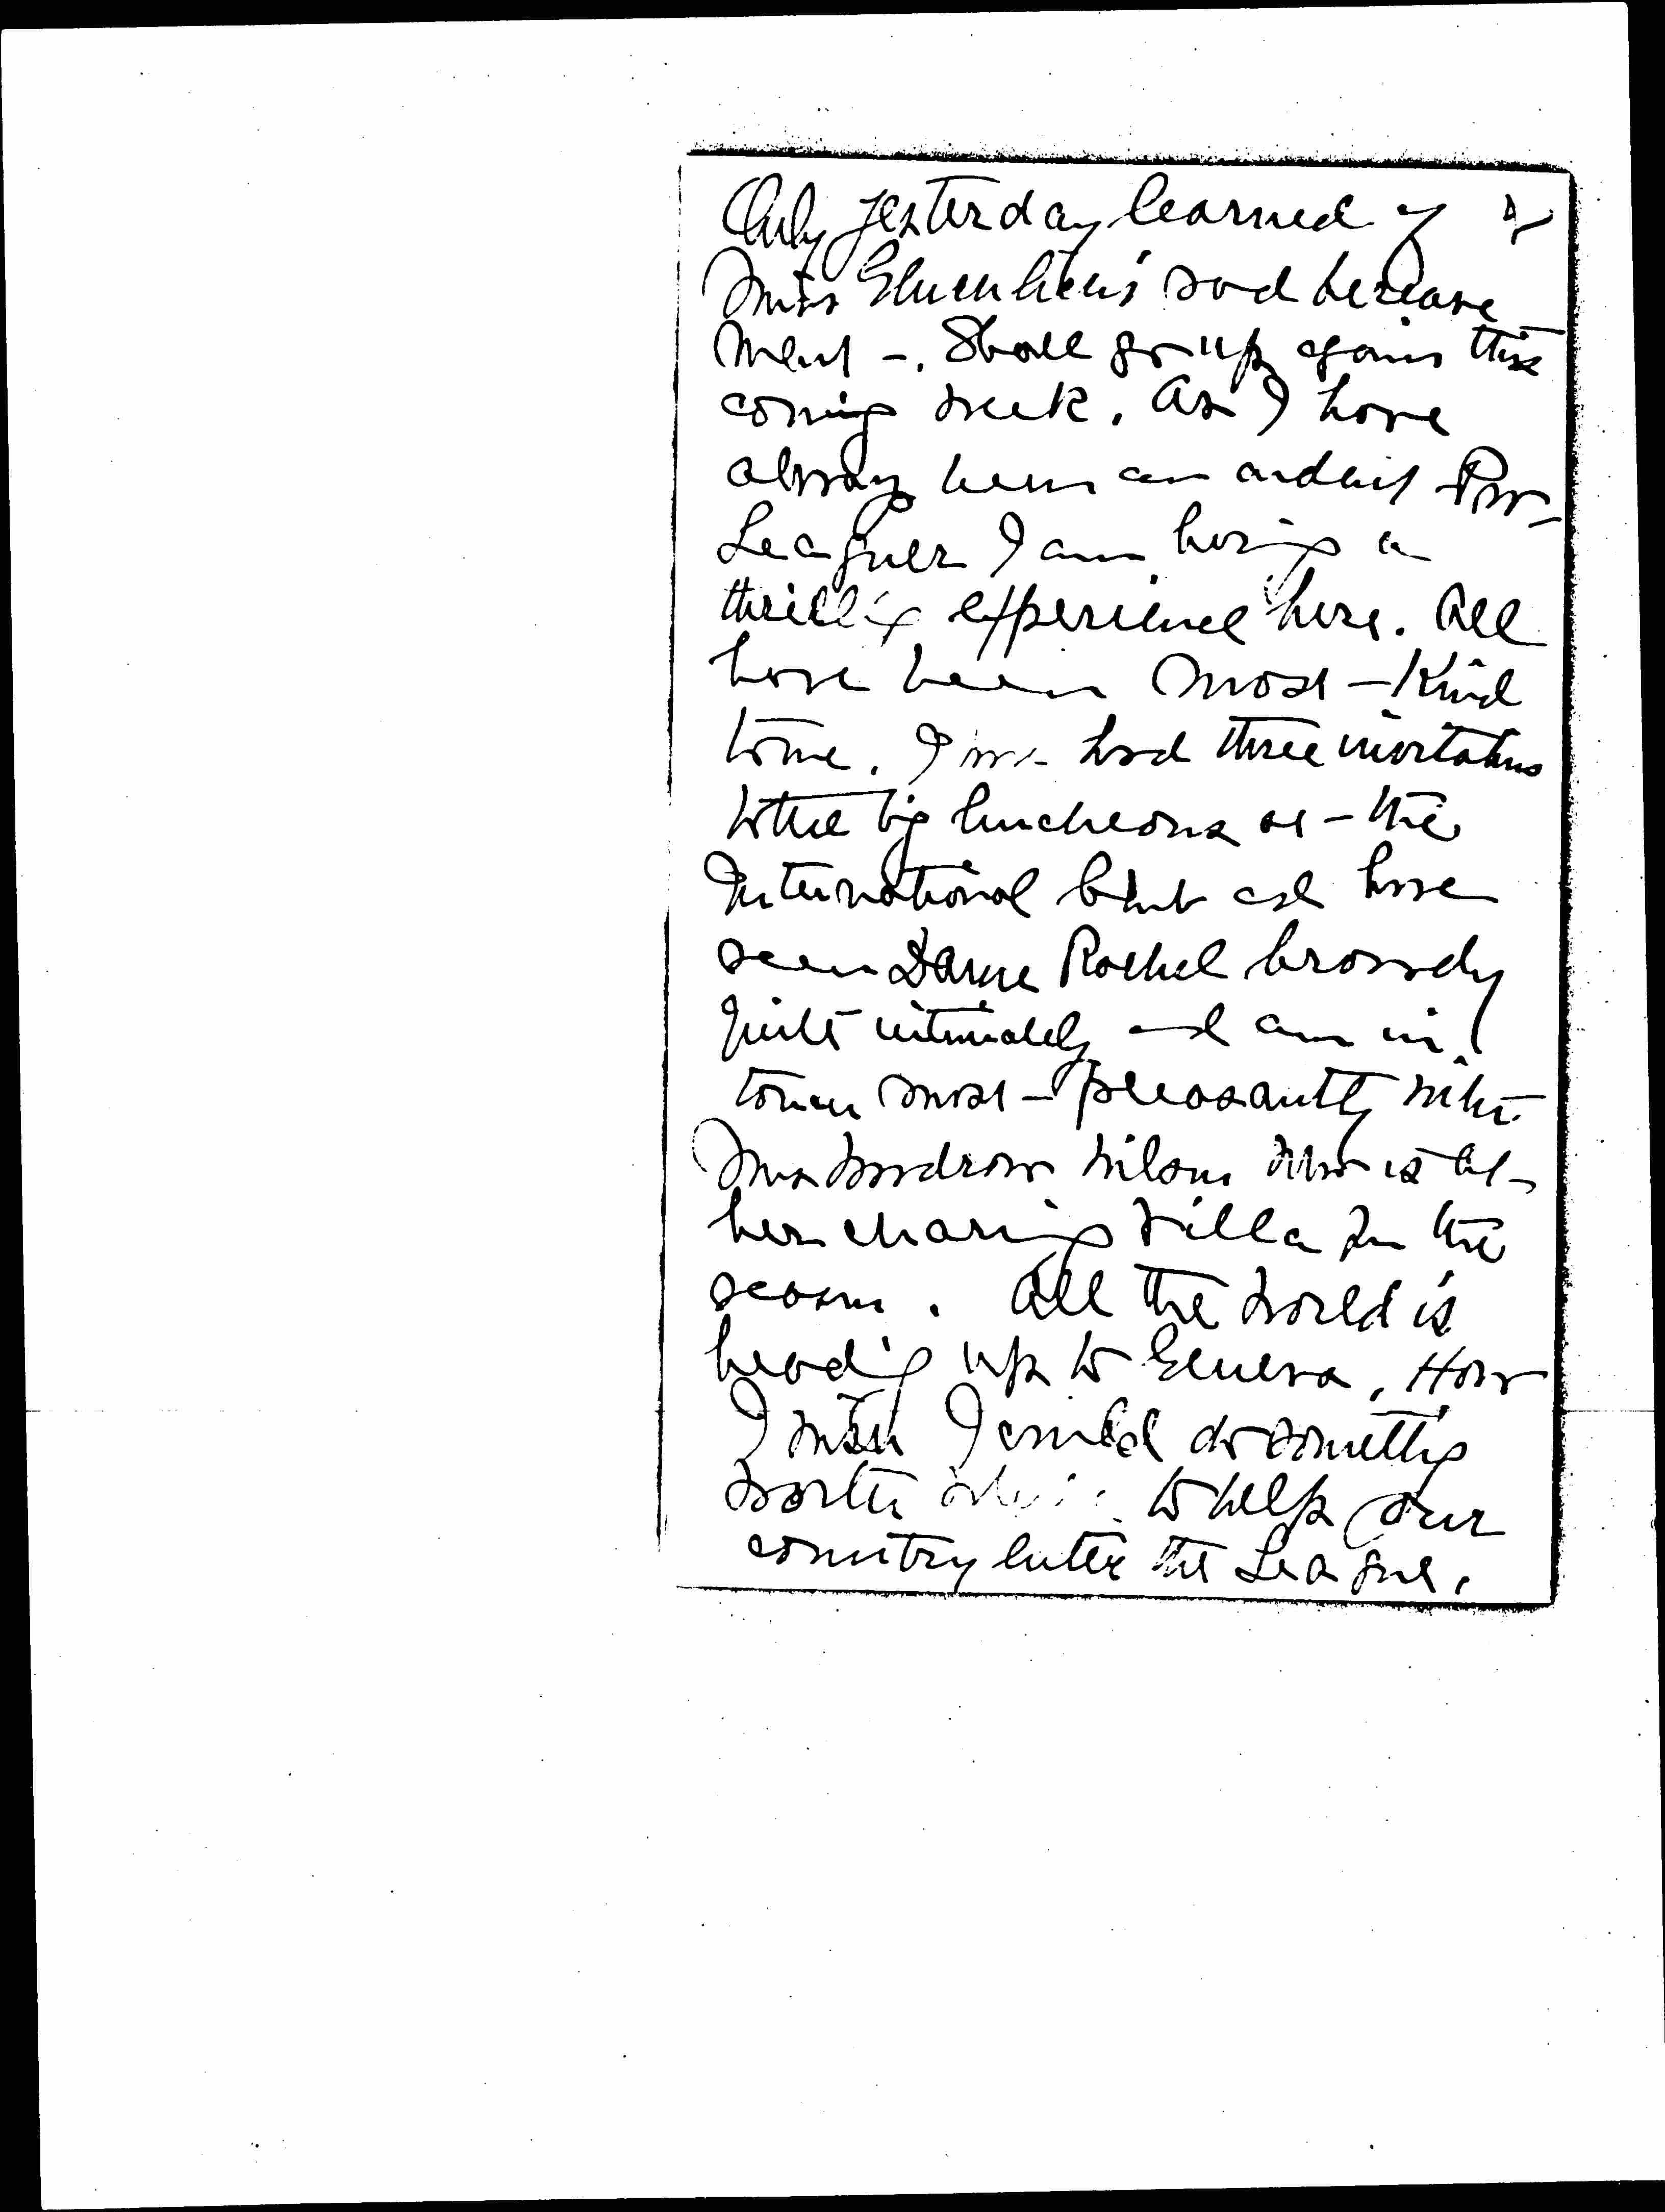 Only yesterday learned of
Miss sad bereave
ment -. Shall go up again this
coming week. As I have
always been an ardent Pro-
Leaguer I am having a
thrilling experience here. All
have been most - kind
to me. I have had three invitations
to the big luncheons at - the
International Club and have
seen Dame Rachel Crowdy
quite intimately and am in
touch most - pleasantly with
Mrs Woodrow Wilson who is at -
her charming villa for the
season. All the world is
heading up to Geneva. How
I wish I could do something
worth while to help our
country enter the League.